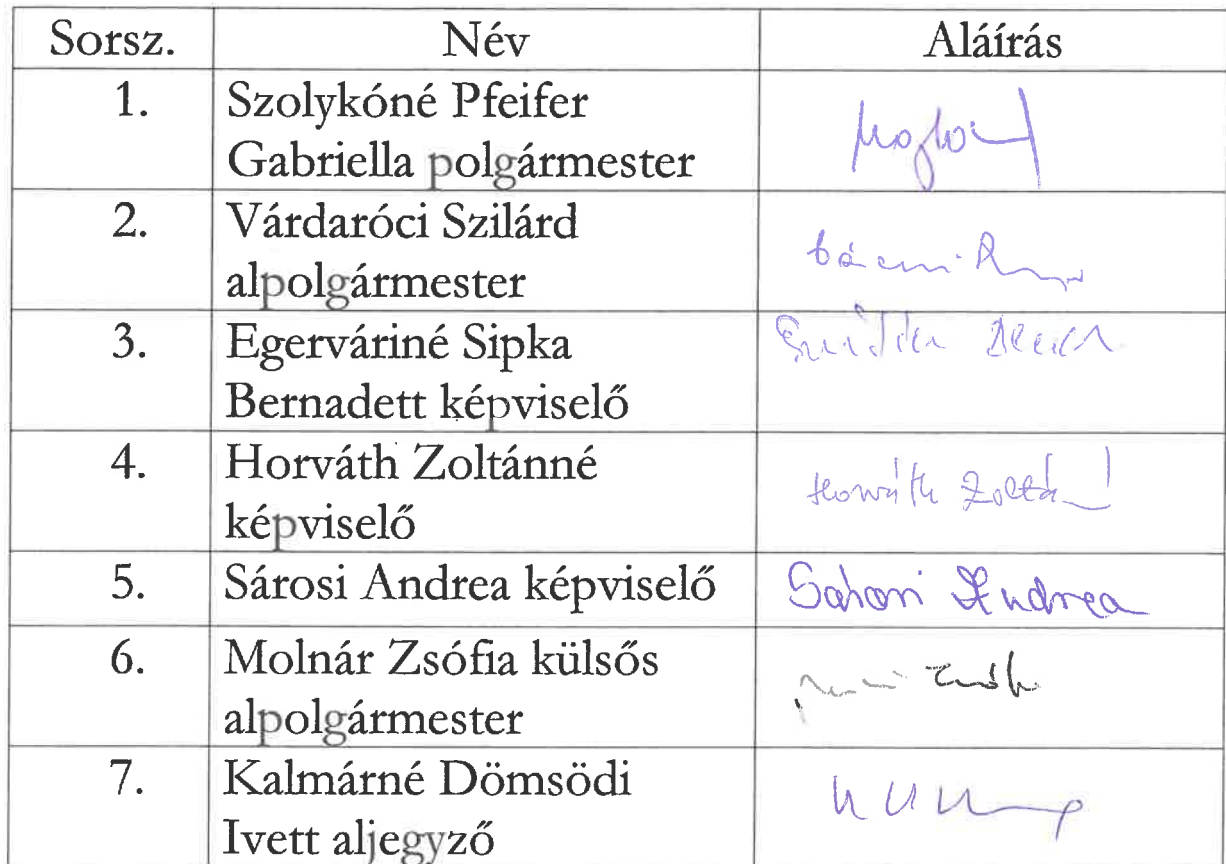 Sorsz. Név Aláírás
1. Szolykóné Pfeifer
Gabriella polgármester
2. Várdaróci Szilárd
alpolgármester
3. Egerváriné Sipka
Bernadett képviselő
4. Horváth Zoltánné
képviselő Horváth Zoltán
5. Sárosi Andrea képviselő Sárosi Andrea
6. Molnár Zsófia külsős
alpolgármester
7. Kalmárné Dömsödi
Ivett aljegyző